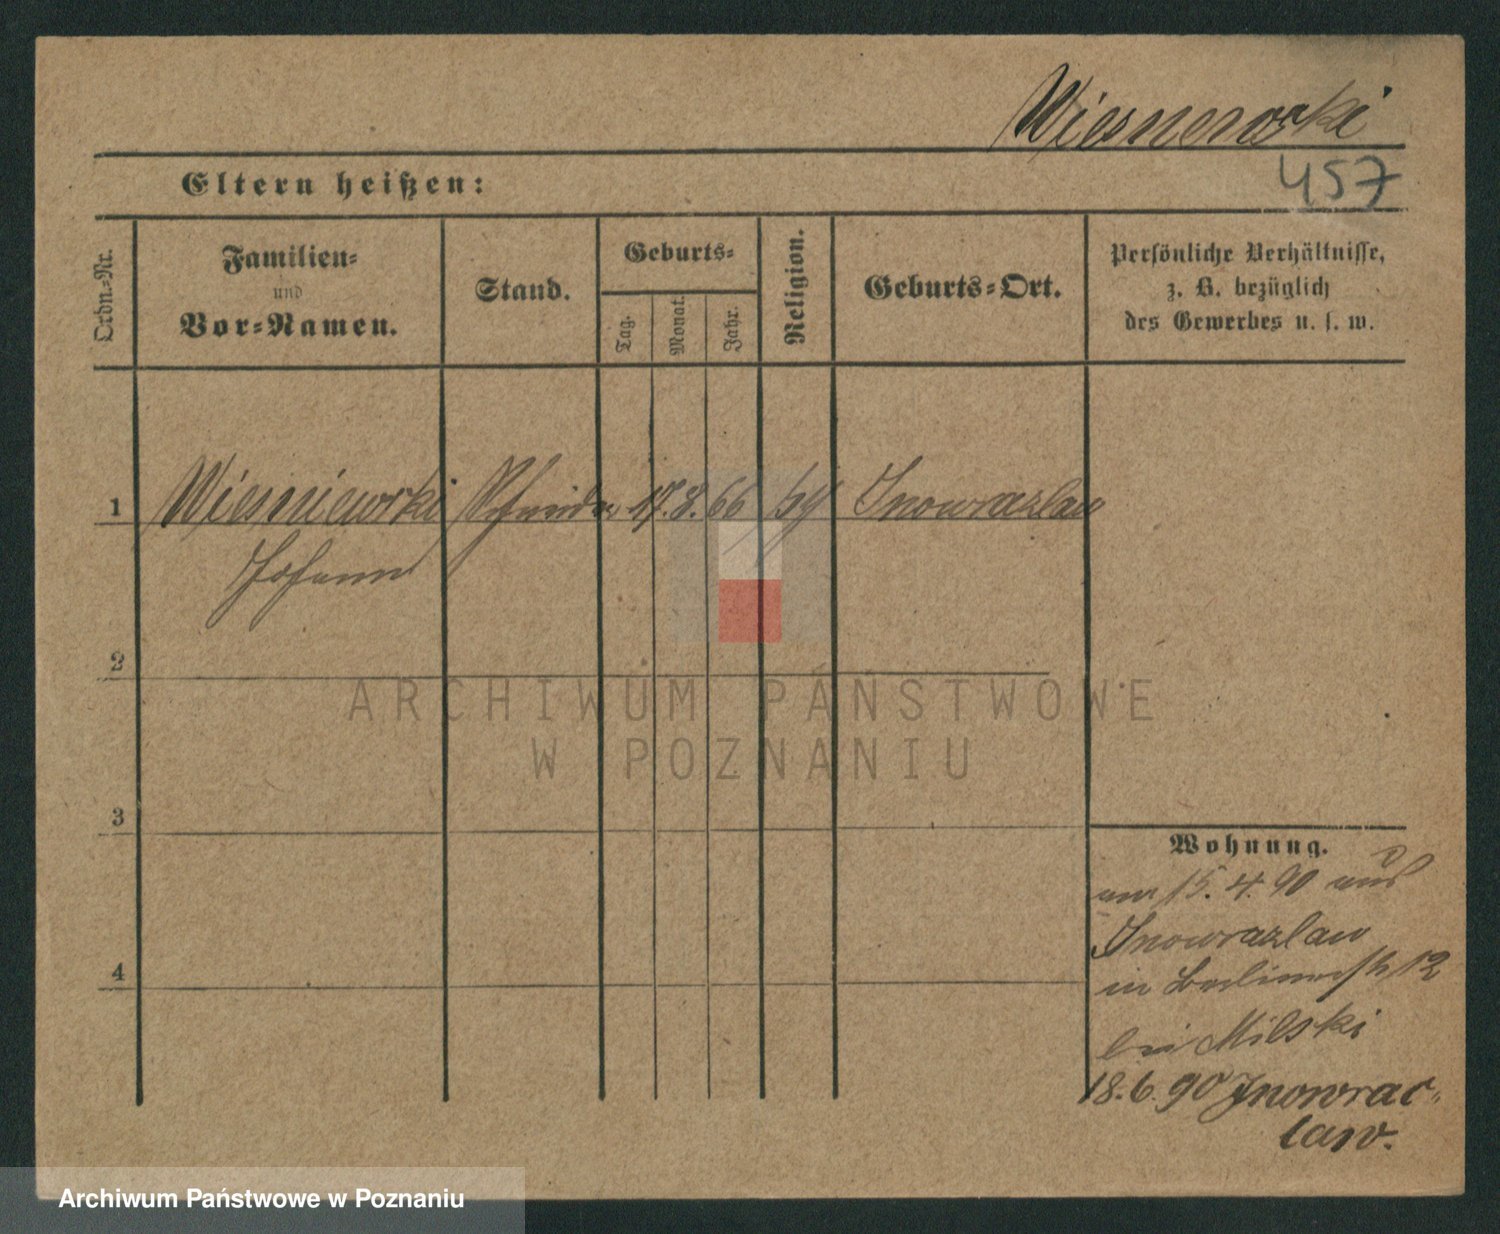 Wiesnewski
457
Eltern heißen:
Ordn.-Nr.
Familien-
und
Vor-Namen.
Stand.
Geburts-
Tag.
Monat.
Jahr.
Religion.
Geburts-Ort.
Persönliche Verhältnisse,
z. B. bezüglich
des Gewerbes u. s. w.
1 Wiesniewski Schneider 17. 8. 66 Inowrazlaw
Johann
2
ARCHIWUM PAŃSTWOWE
W POZNANIU
3
Wohnung.
am 15. 4. 90 aus
Inowrazlaw
4
in Berlinerstr 12
bei Milski
18. 6. 90 Inowrac-
law.
Archiwum Państwowe w Poznaniu